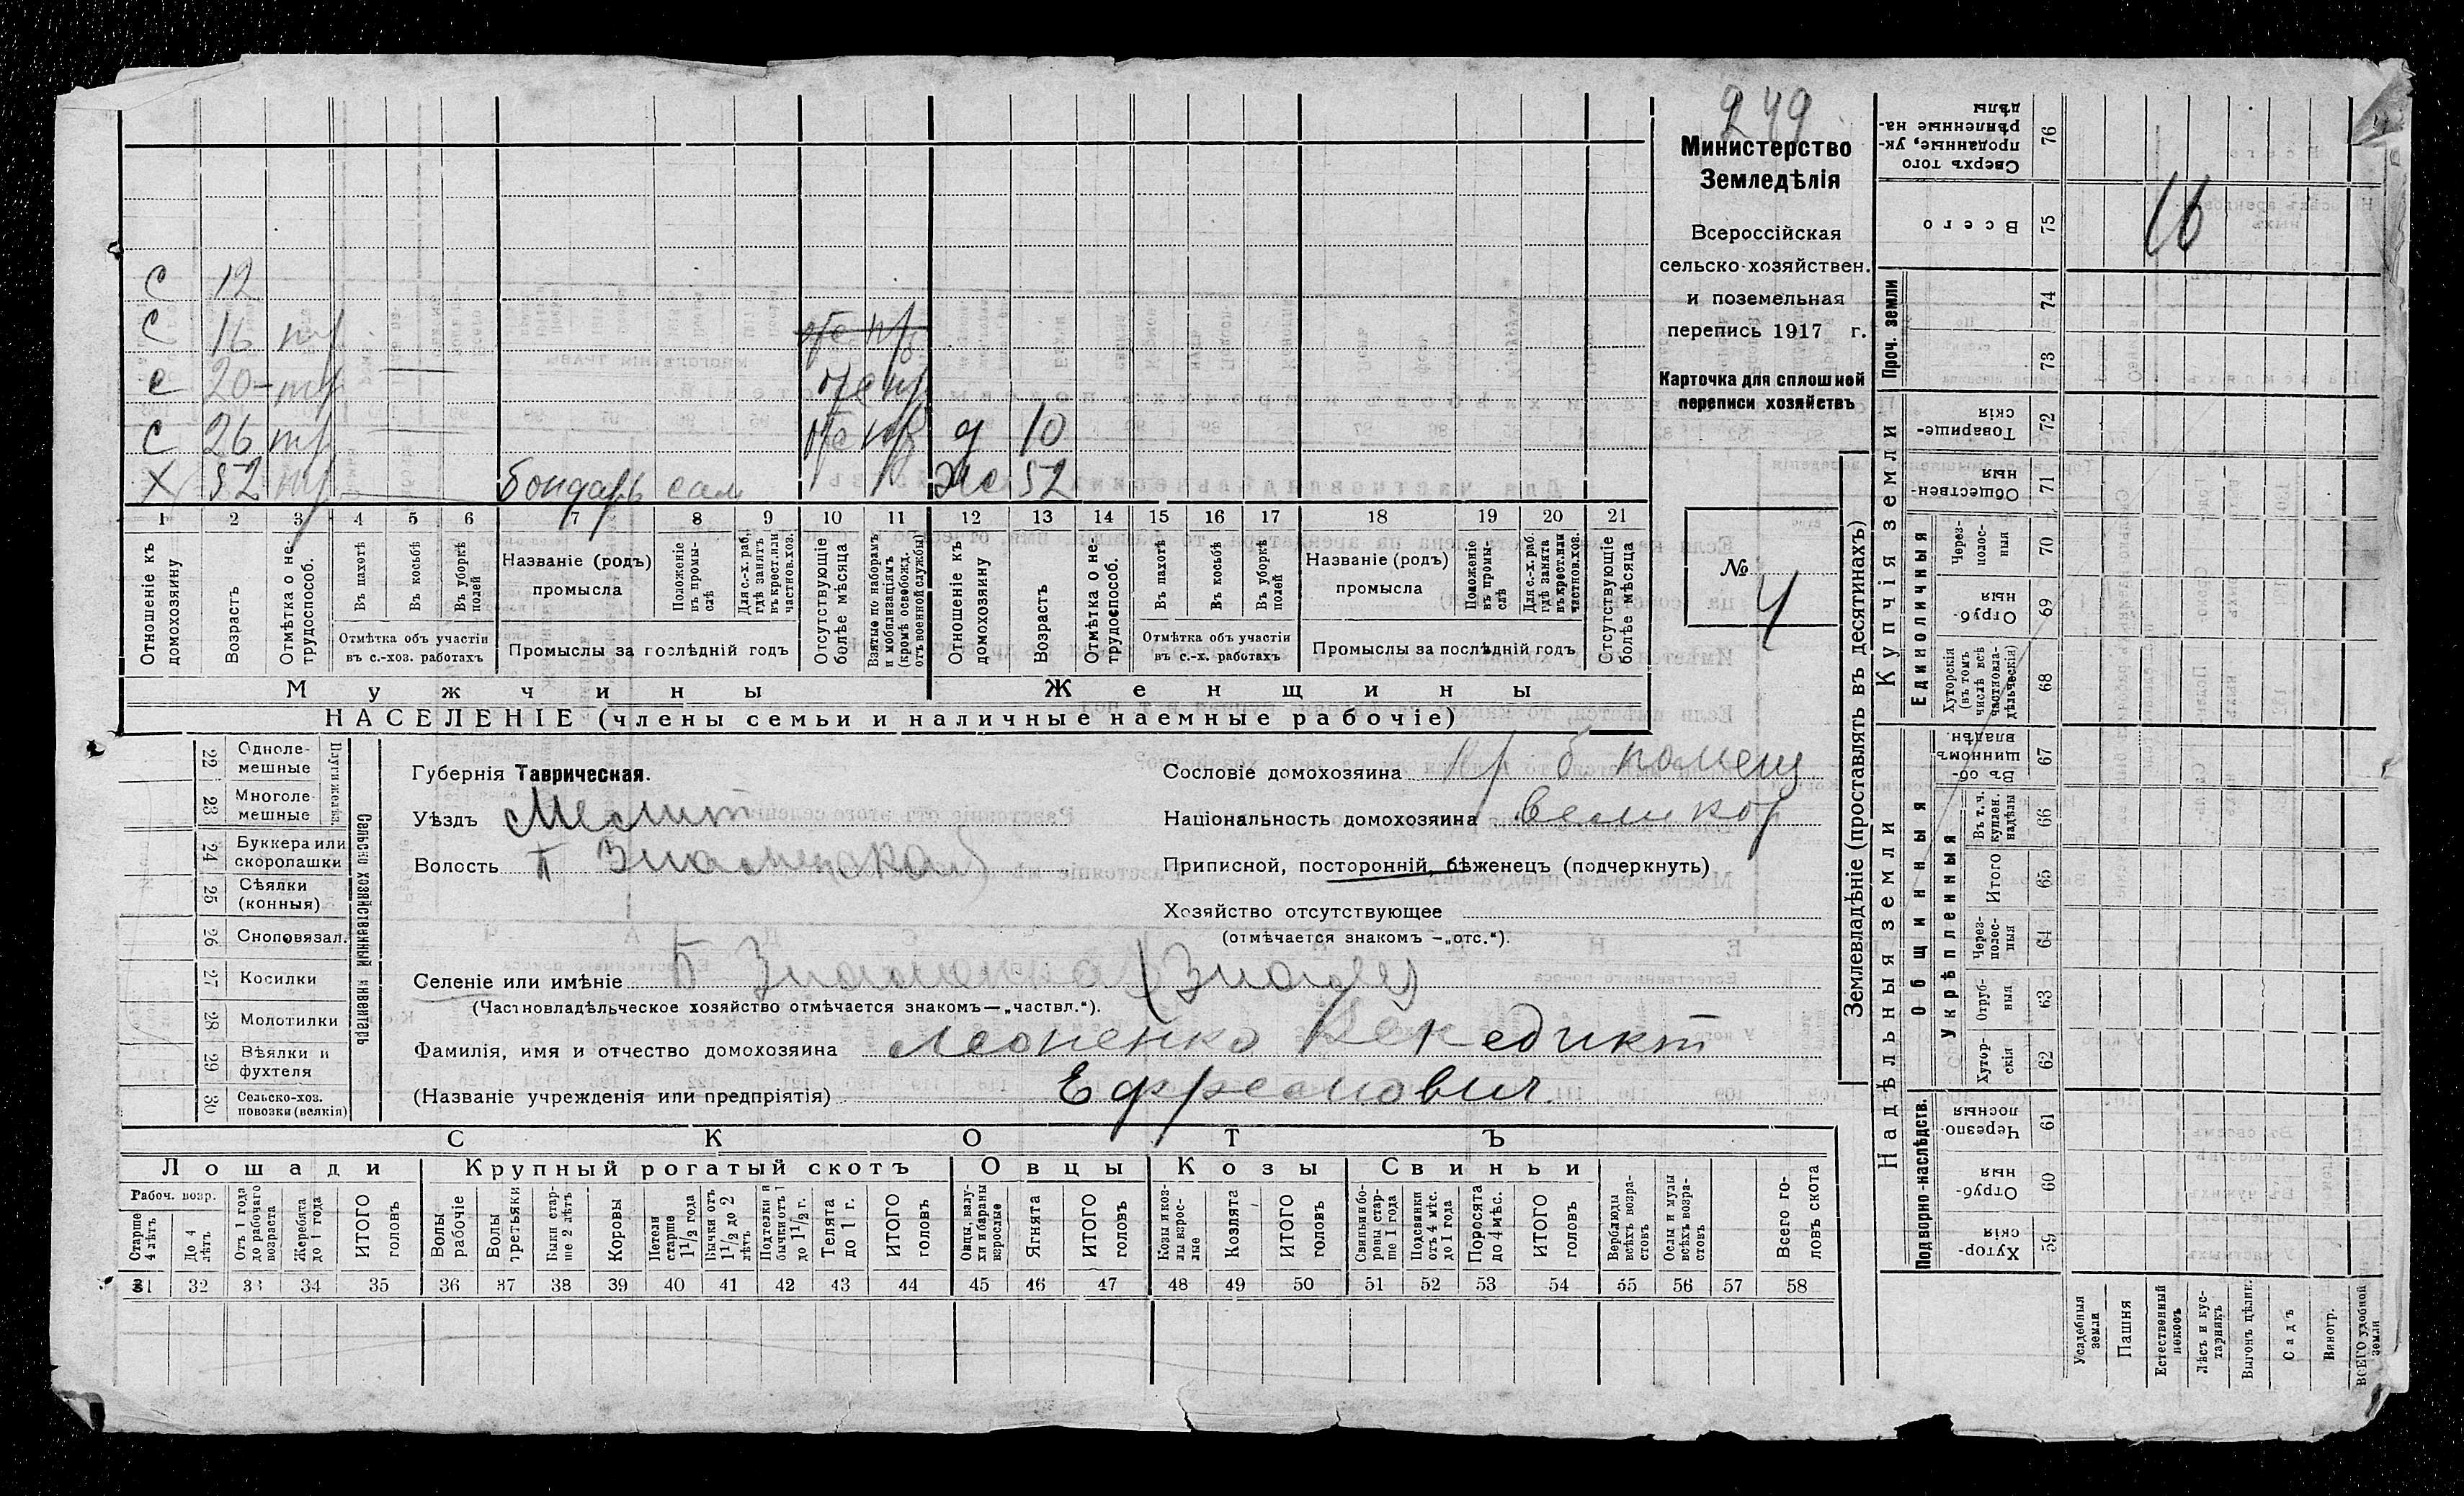 249
Министерство
Земледѣлія
Всероссійская
сельско-хозяйствен.
и поземельная
перепись 1917 г.
Карточка для сплошной
переписи хозяйствъ
№ 4
С 12
С 16
С 20
С 26 д 10
Х 52 Бондарь сам Же 52
1 2 3 4 5 6 7 8 9 10 11 12 13 14 15 16 17 18 19 20 21
Отношеніе къ домохозяину
Возрастъ
Отмѣтка о не-трудоспособ.
Въ пахотѣ
Въ косьбѣ
Въ уборкѣ полей
Отмѣтка объ участіи въ с.-хоз. работахъ
Названіе (родъ) промысла
Положеніе въ промы-слѣ
Для с.-х. раб., гдѣ занятъ въ крест. или частнов. хоз.
Промыслы за послѣдній годъ
Отсутствующіе болѣе мѣсяца
Взятые по наборамъ и мобилизаціямъ (кромѣ освобожд. отъ военной службы)
Отношеніе къ домохозяину
Возрастъ
Отмѣтка о не-трудоспособ.
Въ пахотѣ
Въ косьбѣ
Въ уборкѣ полей
Отмѣтка объ участіи въ с.-х. работахъ
Названіе (родъ) промысла
Положеніе въ промы-слѣ
Для с.-х. раб. гдѣ занята въ крест. или частнов. хоз.
Промыслы за послѣдній годъ
Отсутствующіе болѣе мѣсяца
Мужчины Женщины
НАСЕЛЕНІЕ (члены семьи и наличные наемные рабочіе)
22 Одноле-мешные
23 Многоле-мешные
Плуги желѣз.
24 Буккера или скоропашки
25 Сѣялки (конныя)
26 Сноповязал.
27 Косилки
28 Молотилки
29 Вѣялки и фухтеля
30 Сельско-хоз. повозки (всякія)
Сельско хозяйственный инвентарь
Губернія Таврическая.
Уѣздъ Мелит
Волость Б Знаменская
Селеніе или имѣніе Б Знаменка
(Частновладѣльческое хозяйство отмѣчается знакомъ—„частвл.“).
Фамилія, имя и отчество домохозяина Леоненко Венедикт
(Названіе учрежденія или предпріятія) Ефремович
Сословіе домохозяина кр б помещ
Національность домохозяина великор
Приписной, посторонній, бѣженецъ (подчеркнуть)
Хозяйство отсутствующее
(отмѣчается знакомъ —„отс.“).
СКОТЪ
Лошади Крупный рогатый скотъ Овцы Козы Свиньи
Рабоч. возр.
Старше 4 лѣтъ
До 4 лѣтъ
Отъ 1 года до рабочаго возраста
Жеребята до 1 года
ИТОГО головъ
Волы рабочіе
Волы третьяки
Быки стар-ше 2 лѣтъ
Коровы
Нетели старше 1 1/2 года
Бычки отъ 1 1/2 до 2 лѣтъ
Подтелки и бычки отъ 1 до 1 1/2 г.
Телята до 1 г.
ИТОГО головъ
Овцы, валу-хи и бараны взрослые
Ягнята
ИТОГО головъ
Козы и коз-лы взрос-лые
Козлята
ИТОГО головъ
Свиньи и бо-ровы стар-ше 1 года
Подсвинки отъ 4 мѣс. до 1 года
Поросята до 4 мѣс.
ИТОГО головъ
Верблюды всѣхъ возра-стовъ
Ослы и мулы всѣхъ возра-стовъ
Всего го-ловъ скота
31 32 33 34 35 36 37 38 39 40 41 42 43 44 45 46 47 48 49 50 51 52 53 54 55 56 57 58
Землевладѣніе (проставлять въ десятинахъ)
Надѣльныя земли Купчія земли Проч. земли
Подворно-наслѣдств.
Общинныя
Укрѣпленныя
Единоличныя
59 Хутор-скія
60 Отруб-ныя
61 Черезпо-лосныя
62 Хутор-скія
63 Отруб-ныя
64 Через-полос-ныя
65 Итого
66 Въ т. ч. куплен. надѣлы
67 Въ об-щинномъ владѣн.
68 Хуторскія (въ томъ числѣ всѣ частновла-дѣльческія)
69 Отруб-ныя
70 Через-полос-ныя
71 Обществен-ныя
72 Товарище-скія
73
74
75 Всего
76 Сверхъ того проданные, ук-рѣпленные на-дѣлы
16
Усадебныя земли
Пашня
Естественный покосъ
Лѣсъ и кус-тарникъ
Выгонъ цѣлин.
Садъ
Виногр.
ВСЕГО удобной земли